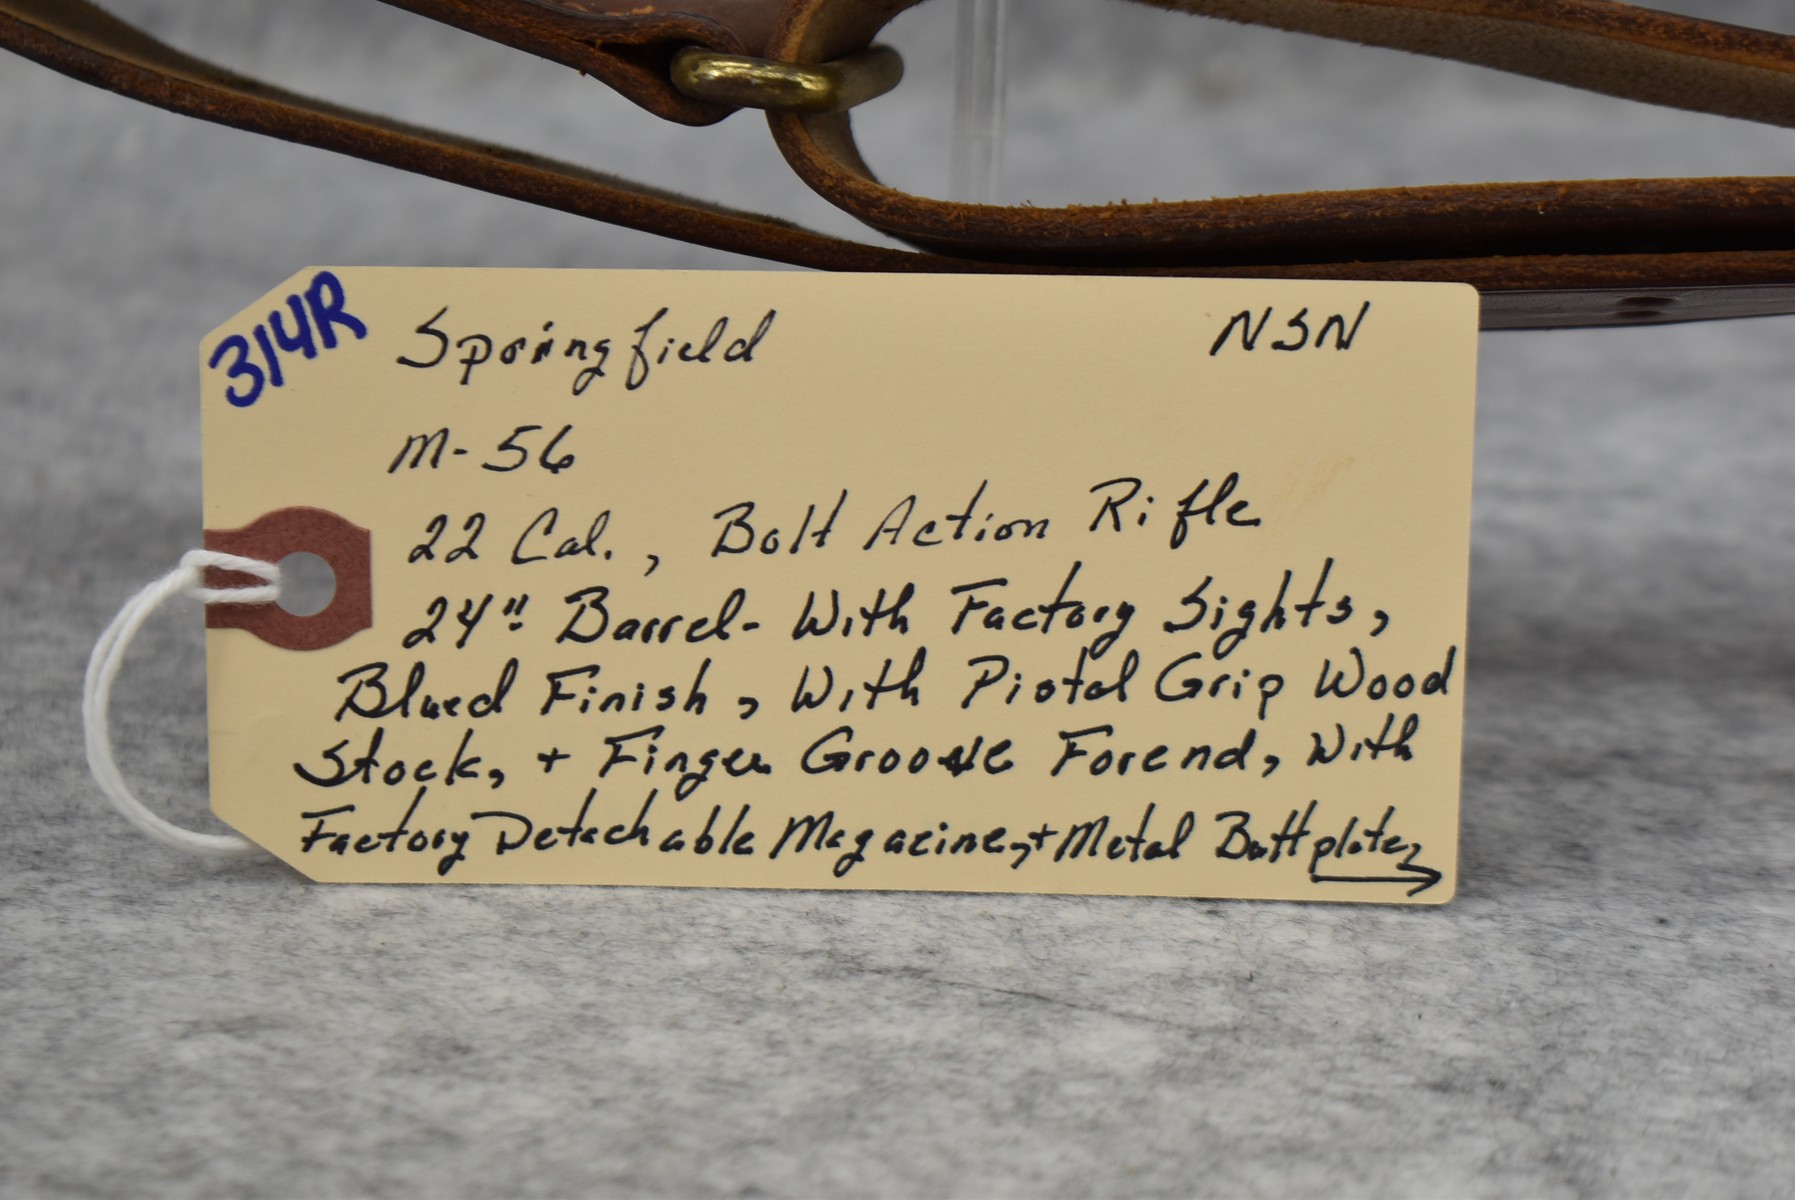 314R
Springfield NSN
M-56
22 Cal., Bolt Action Rifle
24" Barrel- With Factory Sights,
Blued Finish, With Pistol Grip Wood
Stock, + Finger Groove Forend, With
Factory Detachable Magazine, + Metal Buttplate, →